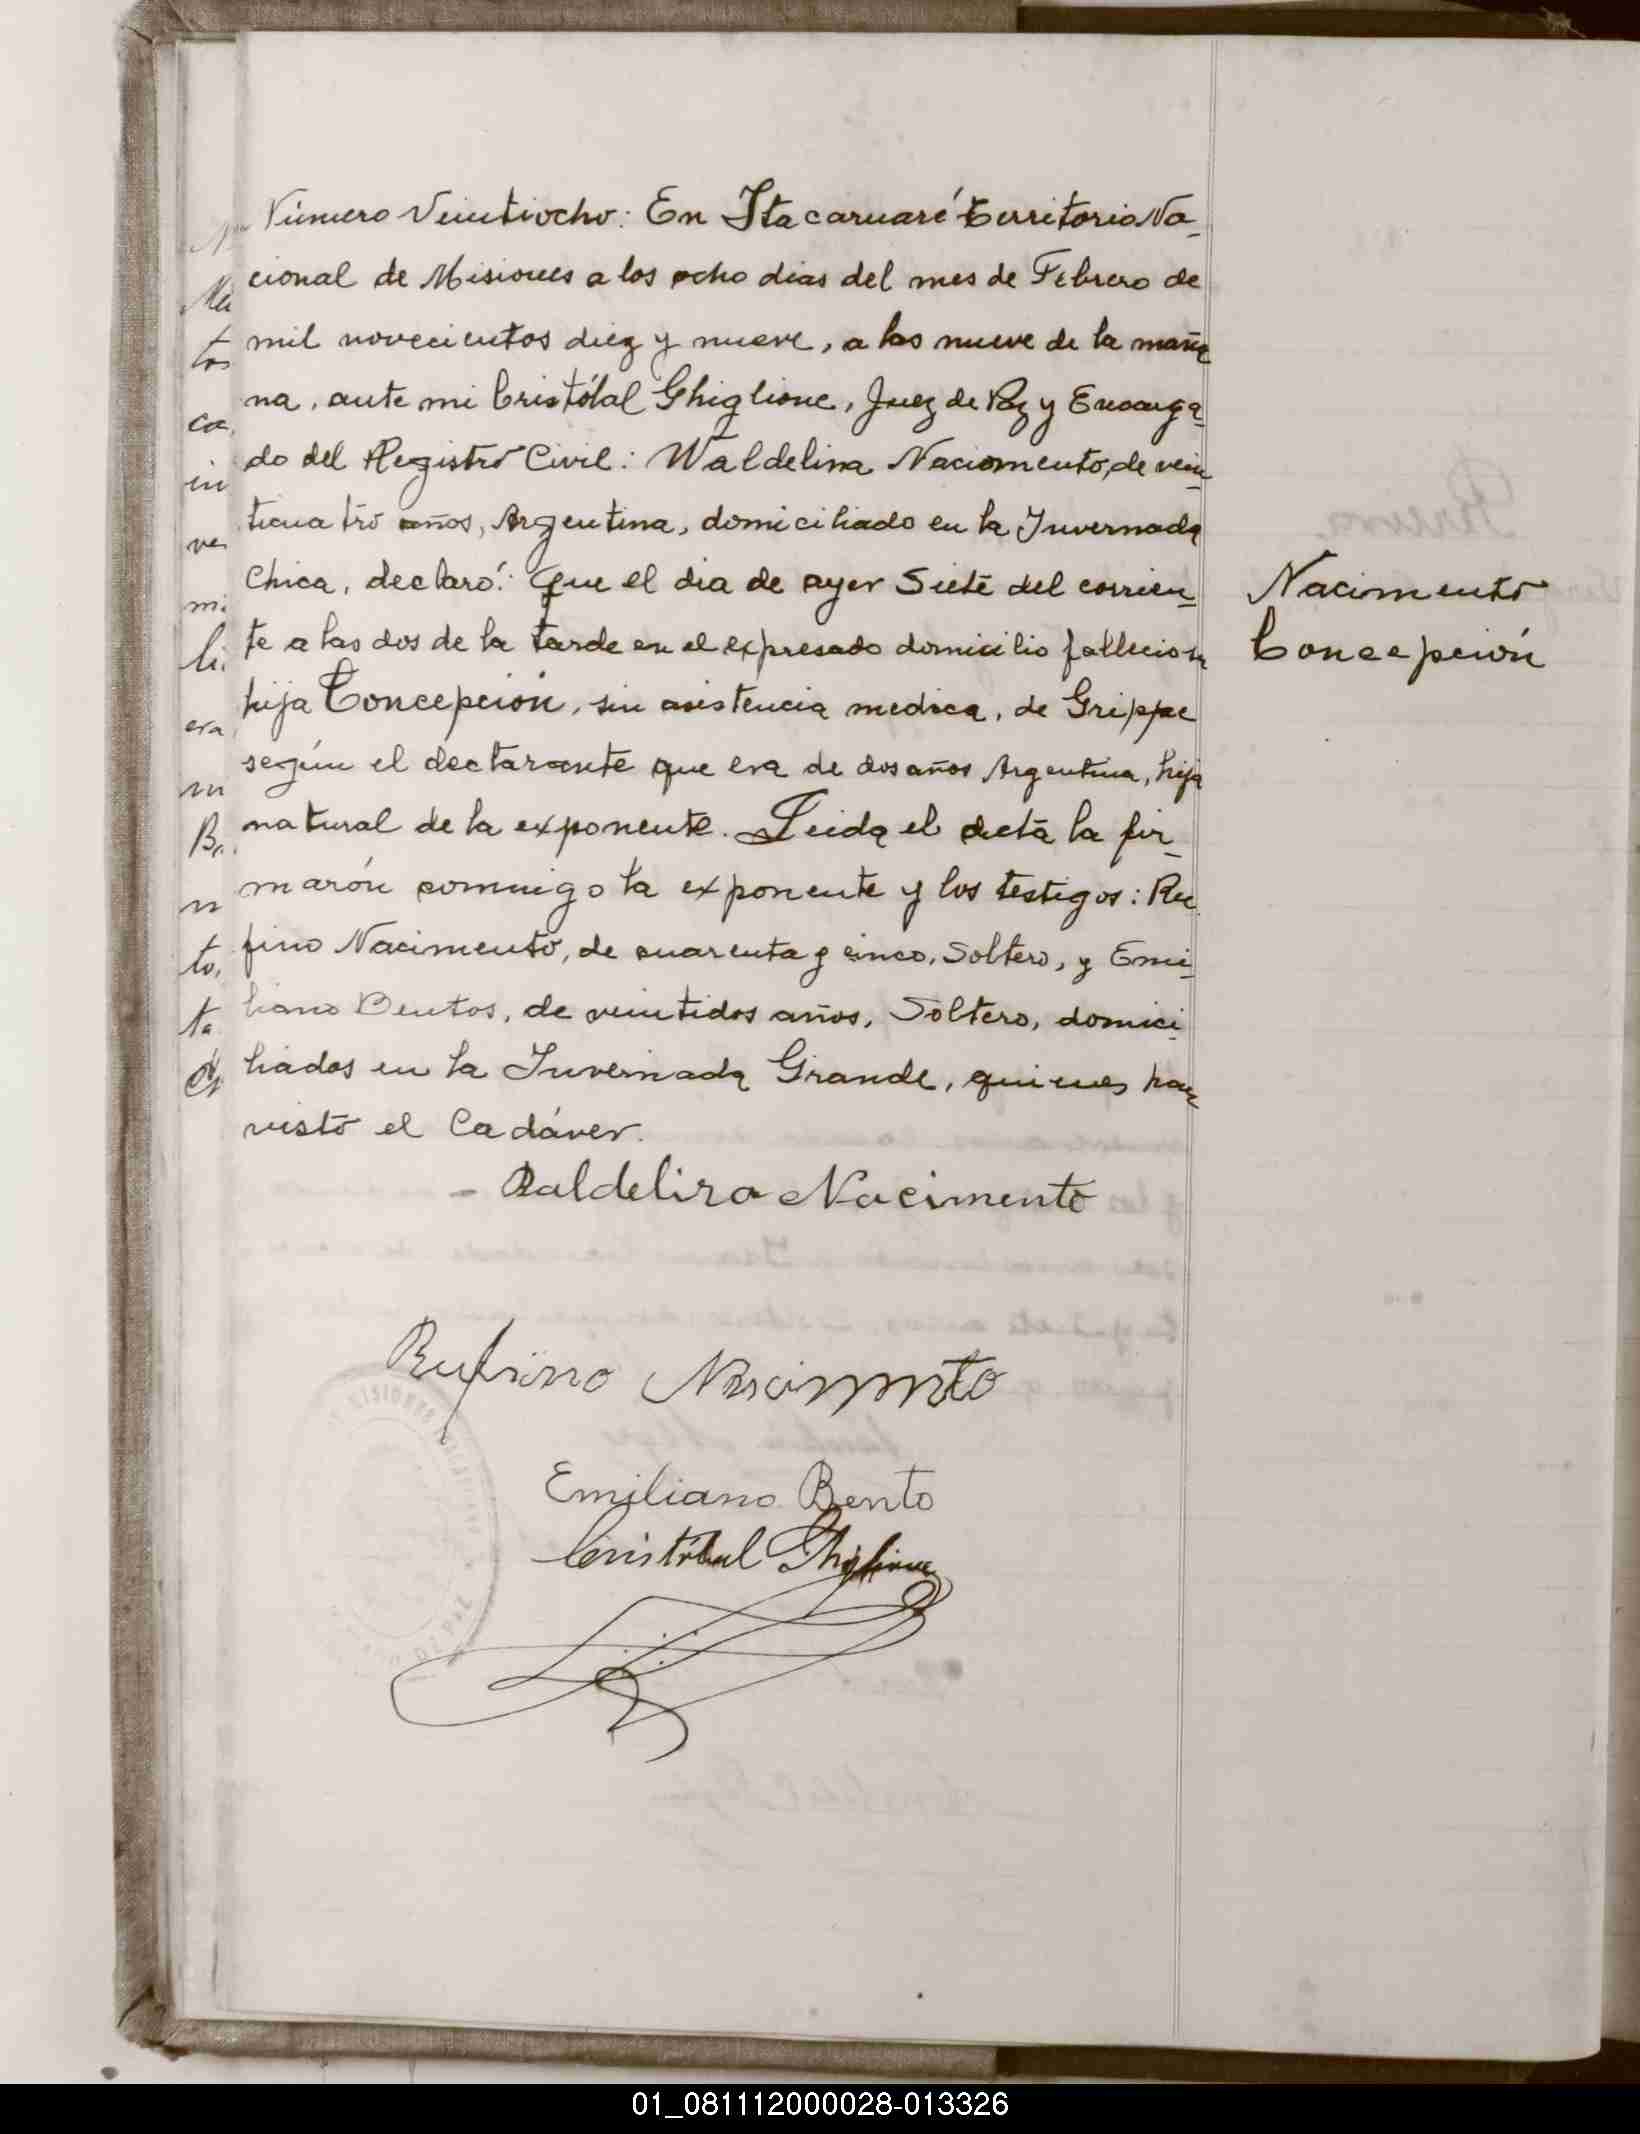 Número Veintiocho: En Itacaruaré Territorio Na-
cional de Misiones a los ocho dias del mes de Febrero de
mil novecientos diez y nueve, a las nueve de la maña
na, ante mi Cristóbal Ghiglione, Juez de Paz y Encarga-
do del Registro Civil: Waldelina Naciomento, de vein-
ticuatro años, Argentina, domiciliado en la Invernada
Chica, declaró: Que el dia de ayer Siete del corrien-
te a las dos de la tarde en el expresado domicilio fallecio su
hija Concepción, sin asistencia medica, de Grippe
según el declarante que era de dos años Argentina, hija
natural de la exponente. Leida el acta la fir-
marón commigo la exponente y los testigos: Ru
fino Nacimento, de cuarenta y cinco, Soltero, y Emi-
liano Bentos, de veintidos años, Soltero, domici-
liados en la Invernada Grande, quienes han
visto el Cadáver.
Nacimento
Concepción
- Baldelira Nacimento
Rufino Nascimento
Emiliano Bento
Cristóbal Ghiglione
01_081112000028-013326